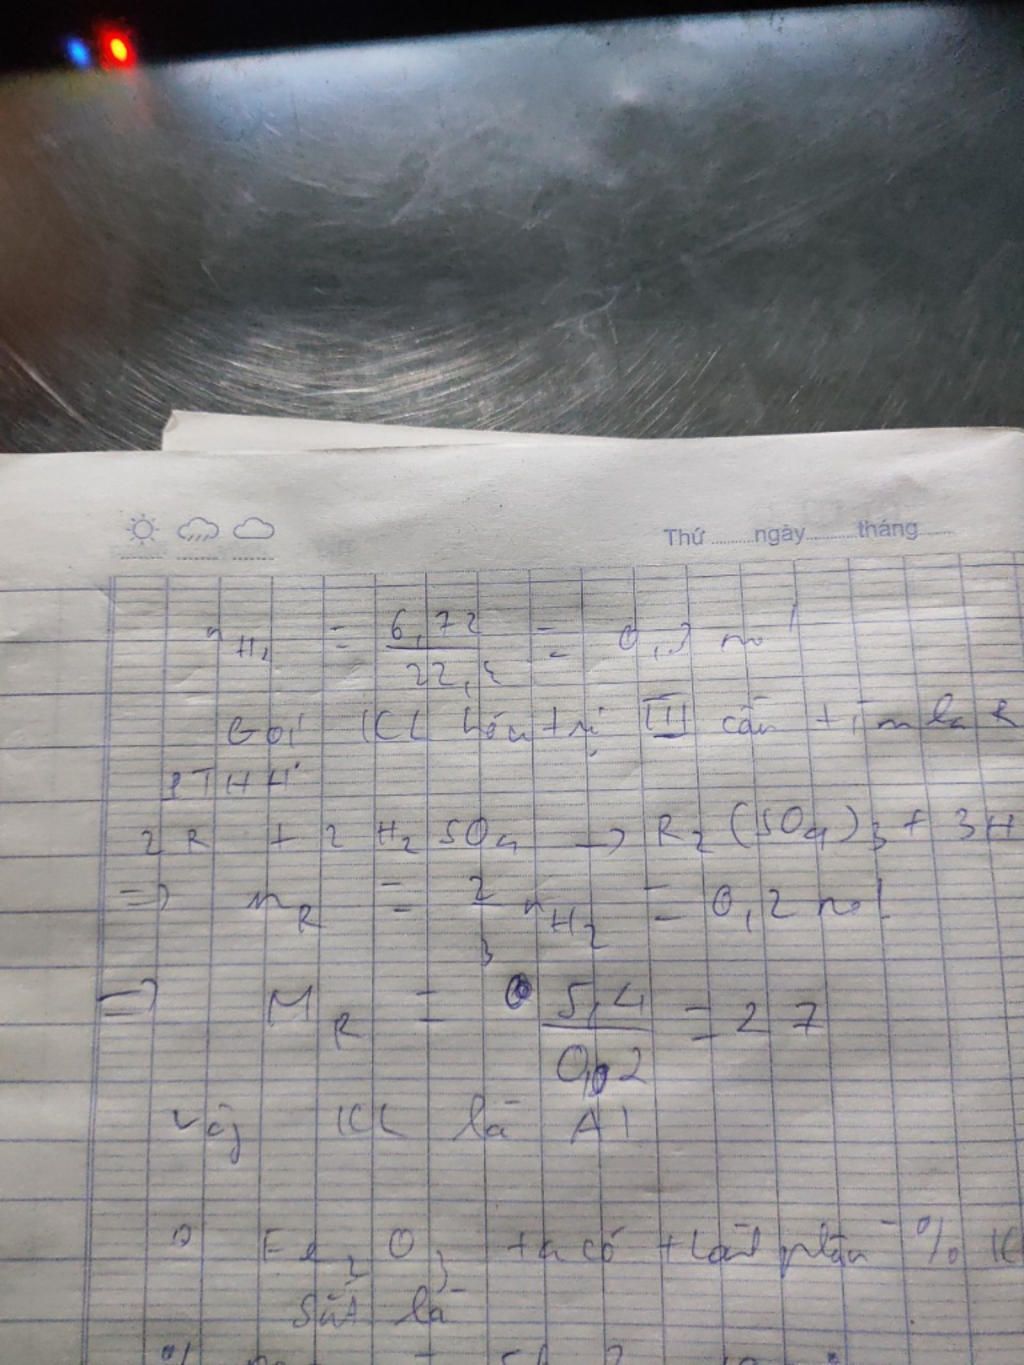 Thứ ........ngày.........tháng......
n H2 = 6,72 / 22,4 = 0,3 mol
Gọi KL hóa trị III cần tìm là R
PTHH:
2 R + 2 H2SO4 → R2(SO4)3 + 3H
=> nR = 2/3 nH2 = 0,2 mol
=> MR = 5,4 / 0,2 = 27
Vậy KL là Al
Fe2O3 ta có thành phần %
sắt là